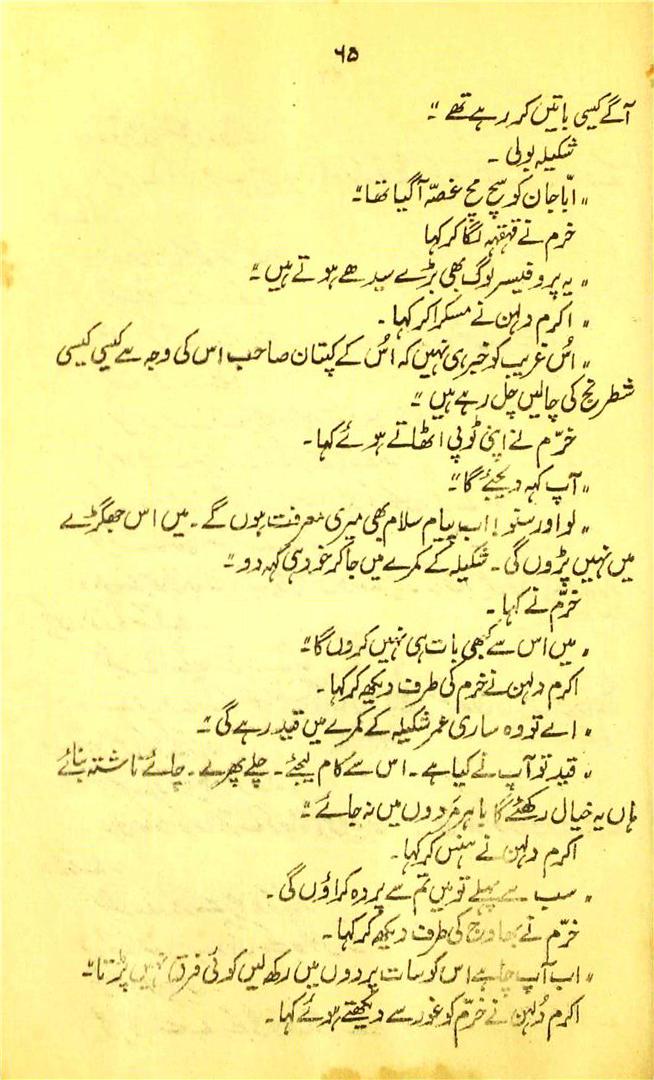 ۶۵
آگے کیسی باتیں کر رہے تھے ۔"
شکیلہ بولی ۔
"ابّا جان کو سچ مچ غصّہ آگیا تھا۔"
خرم نے قہقہہ لگا کر کہا
"یہ پروفیسر لوگ بھی بڑے سیدھے ہوتے ہیں ۔"
"اکرم دلہن نے مسکرا کر کہا ۔
"اُس غریب کو خبر ہی نہیں کہ اُس کے کپتان صاحب اس کی وجہ سے کیسی کیسی
شطرنج کی چالیں چل رہے ہیں ۔"
خرّم نے اپنی ٹوپی اٹھاتے ہوئے کہا۔
"آپ کہہ دیجئے گا۔"
"لو اور سنو! اب پیام سلام بھی میری معرفت ہوں گے ۔ میں اس جھگڑے
میں نہیں پڑوں گی ۔ شکیلہ کے کمرے میں جا کر خود ہی کہہ دو ۔"
خرّم نے کہا ۔
"میں اس سے کبھی بات ہی نہیں کروں گا۔"
اکرم دلہن نے خرم کی طرف دیکھ کر کہا ۔
"اے تو وہ ساری عمر شکیلہ کے کمرے میں قید رہے گی ۔"
"قید تو آپ نے کیا ہے ۔ اس سے کام لیجئے ۔ چلے پھرے ۔ چائے ناشتہ بنائے
ہاں یہ خیال رکھئے گا باہر مَردوں میں نہ جائے ۔"
اکرم دلہن نے ہنس کر کہا ۔
"سب سے پہلے تو میں تم سے پردہ کراؤں گی ۔
خرّم نے بھاوج کی طرف دیکھ کر کہا ۔
"اب آپ چاہے اس کو سات پردوں میں رکھ لیں کوئی فرق نہیں پڑتا ۔"
اکرم دُلہن نے خرّم کو غور سے دیکھتے ہوئے کہا ۔